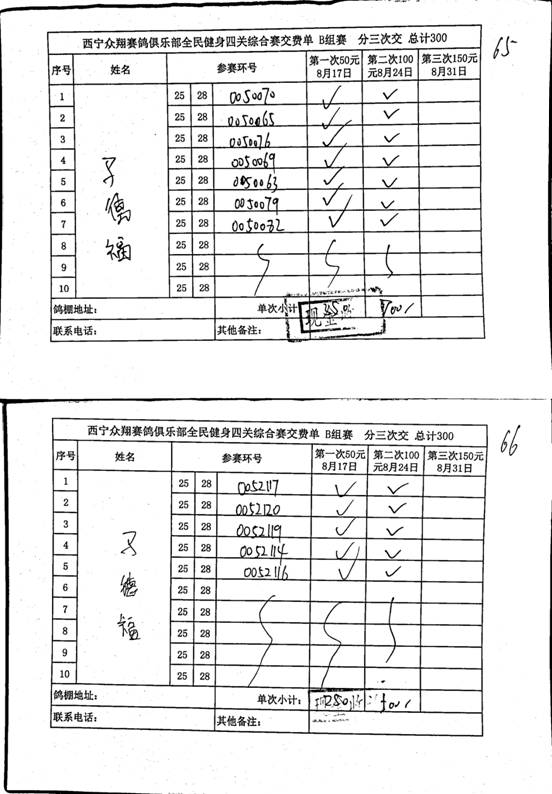 65
西宁众翔赛鸽俱乐部全民健身四关综合赛交费单 B组赛 分三次交 总计300
序号 姓名 参赛环号 第一次50元 8月17日 第二次100元8月24日 第三次150元 8月31日
1 25 28 0050070 ✓ ✓
2 25 28 0050065 ✓ ✓
3 25 28 0050076 ✓ ✓
4 25 28 0050069 ✓ ✓
5 25 28 0050063 ✓ ✓
6 25 28 0050079 ✓ ✓
7 25 28 0050072 ✓ ✓
德福
8 25 28
9 25 28
10 25 28
鸽棚地址: 单次小计: 700
联系电话: 其他备注: 现金
66
西宁众翔赛鸽俱乐部全民健身四关综合赛交费单 B组赛 分三次交 总计300
序号 姓名 参赛环号 第一次50元 8月17日 第二次100元8月24日 第三次150元 8月31日
1 25 28 0052117 ✓ ✓
2 25 28 0052120 ✓ ✓
3 25 28 0052119 ✓ ✓
4 25 28 0052114 ✓ ✓
5 25 28 0052116 ✓ ✓
德福
6 25 28
7 25 28
8 25 28
9 25 28
10 25 28
鸽棚地址: 单次小计: 250
联系电话: 其他备注: